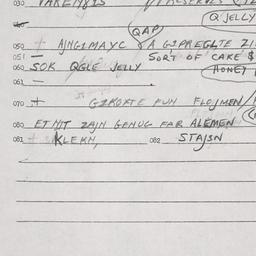 030 VAREMBIS
Q JELLY
QAP
050 + AJNGIMAYC A GIPREGLTE
051 SORT OF CAKE $
060 SOK QGLE JELLY HONEY
061
070 + GEKOFTE FUN FLOJMEN/
080 ET NIT ZAJN GENUG FAR ALEMEN
081 + KLEKN, 082 STAJSN